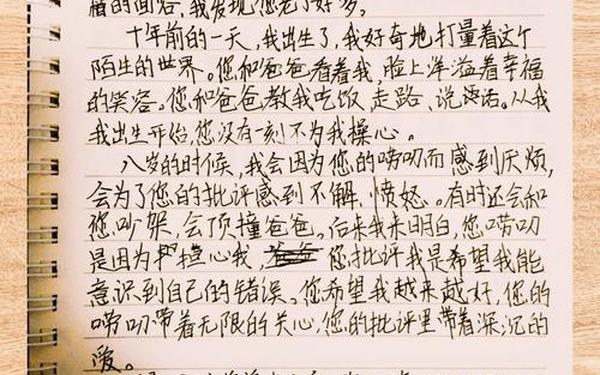 福的面容,我发现您老了好多。
十年前的一天,我出生了,我好奇地打量着这个
陌生的世界。您和爸爸看着我,脸上洋溢着幸福
的笑容。您和爸爸教我吃饭、走路、说话。从我
我出生开始,您没有一刻不为我操心。
八岁的时候,我会因为您的唠叨而感到厌烦,
会为了您的批评感到不解、愤怒。有时还会和
您吵架,会顶撞爸爸。后来我明白,您唠叨
是因为担心我,您批评我是希望我能
意识到自己的错误。您希望我越来越好,您的
唠叨带着无限的关心,您的批评里带着深沉的
爱。